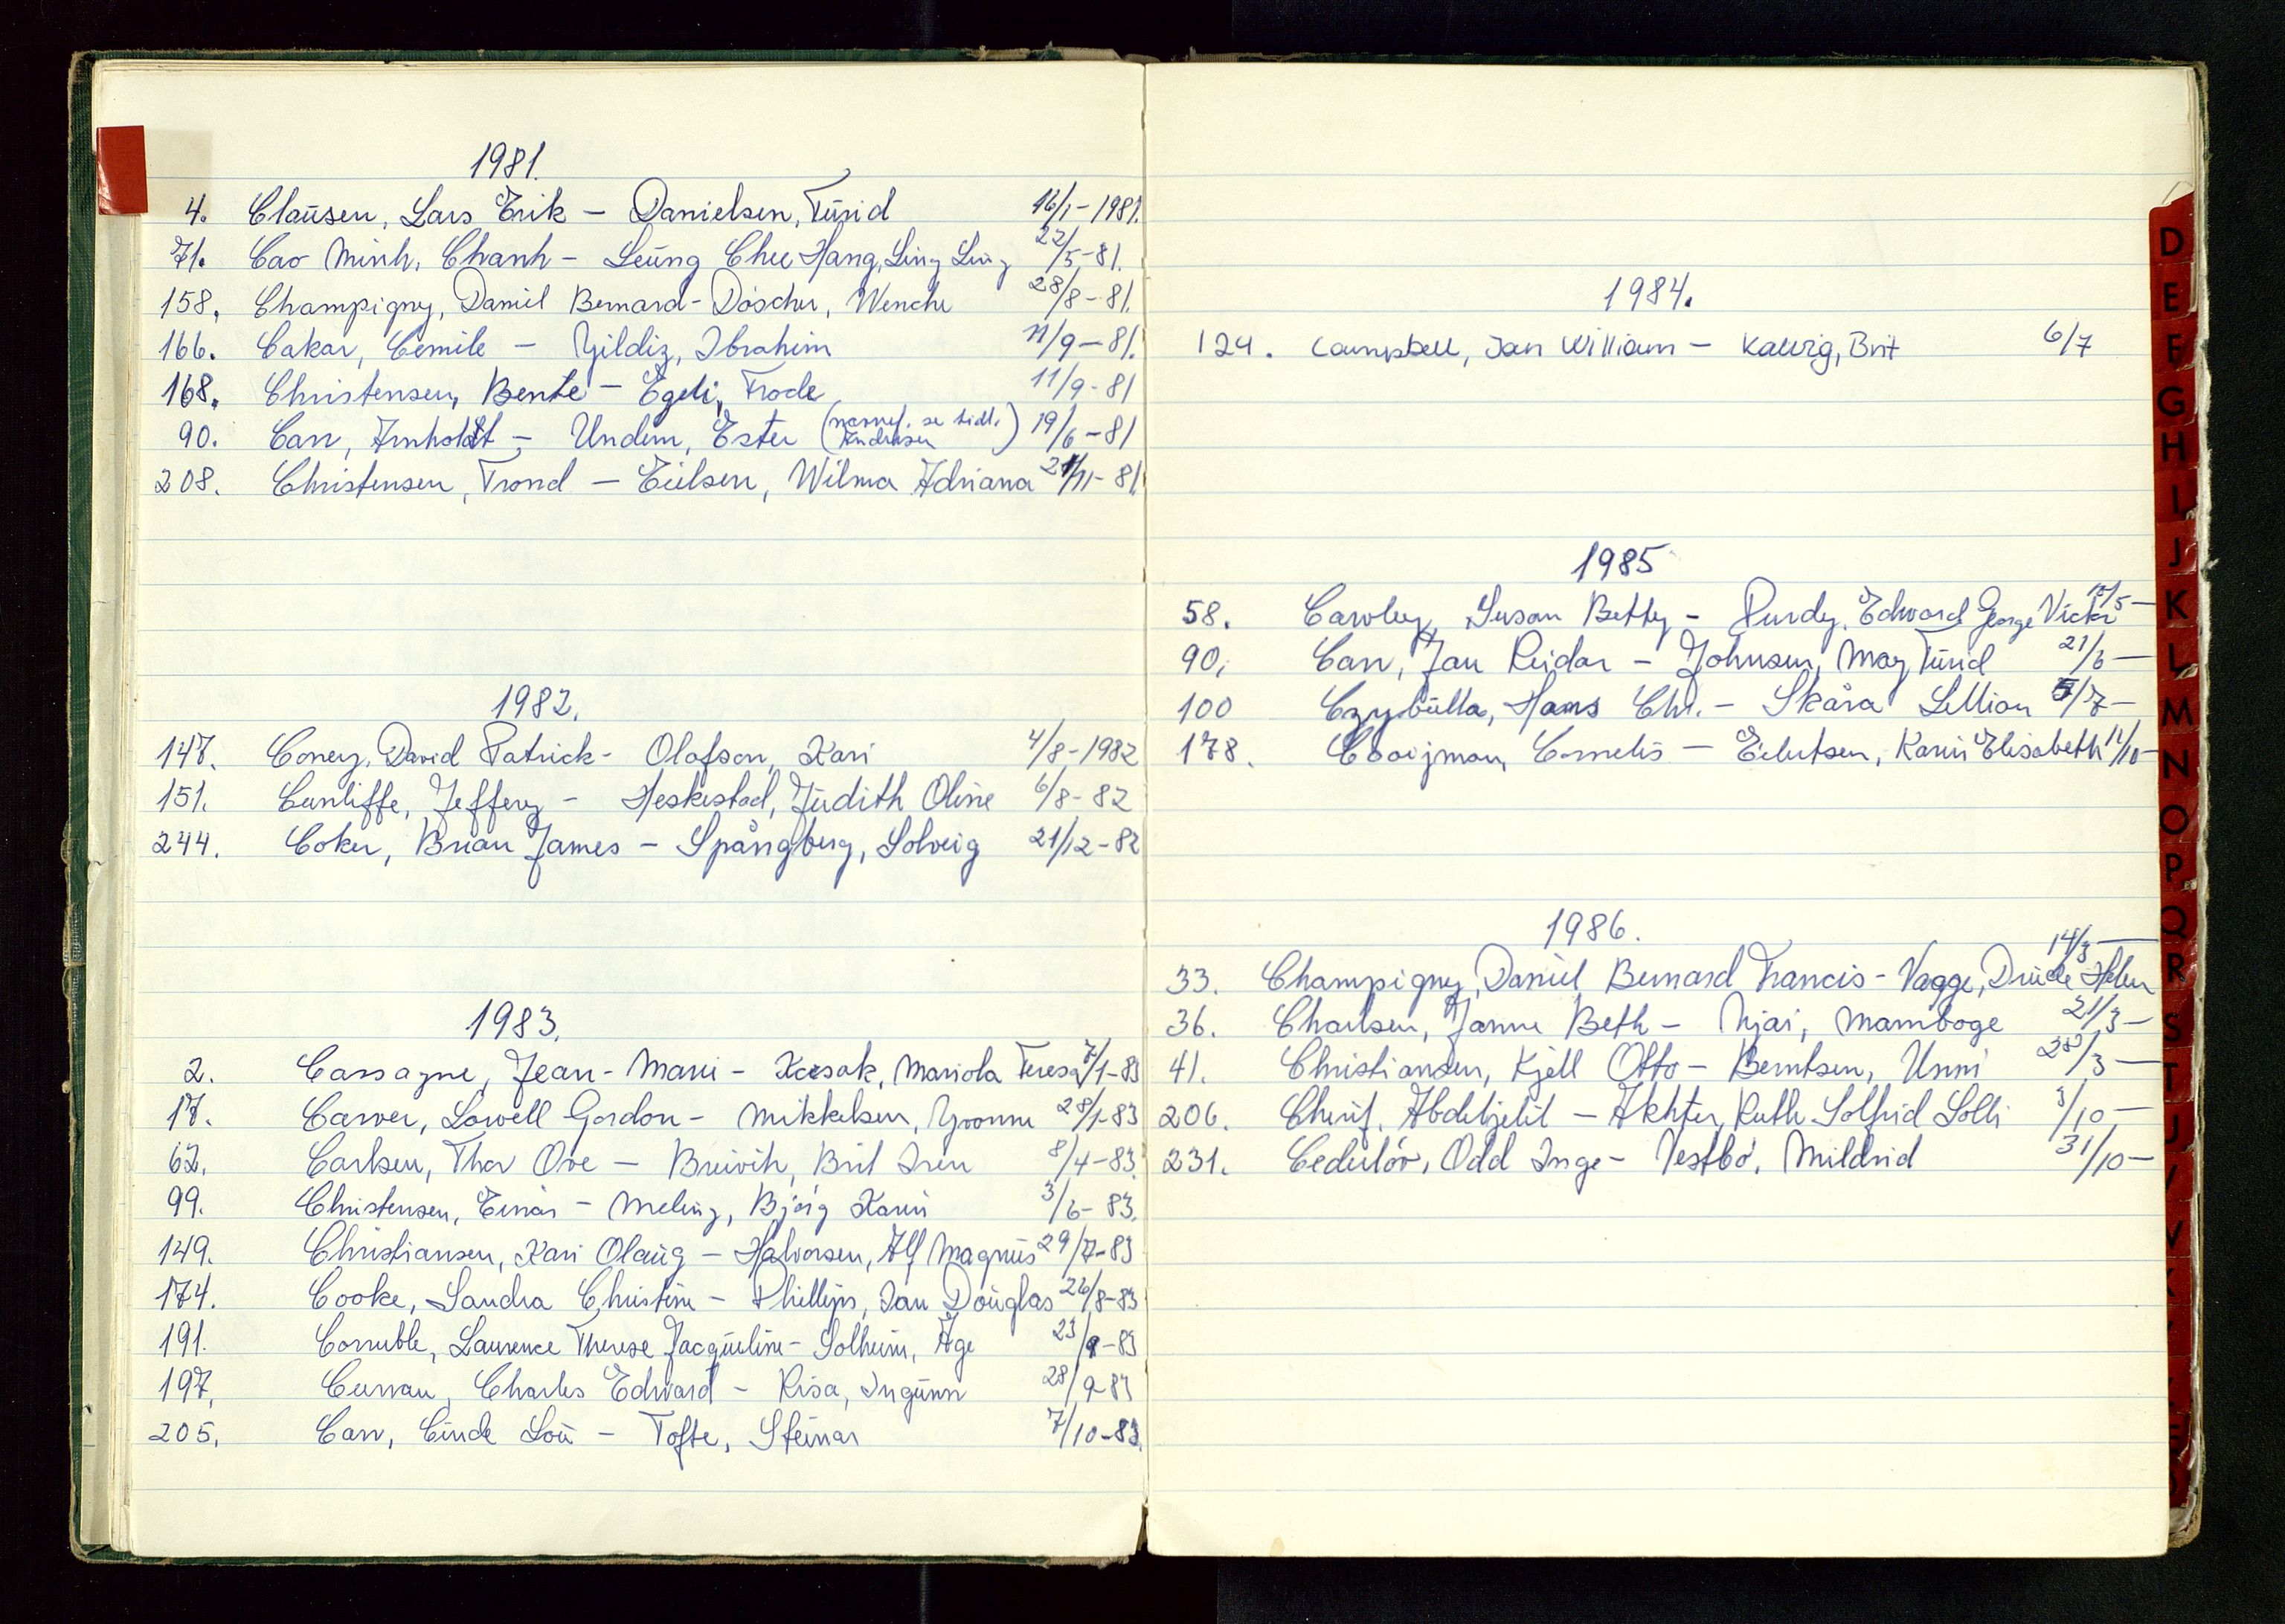 1981.
4. Claúsen, Lars Erik - Danielsen, Túrid 16/1-1981.
71. Cao Minh, Chanh - Leúng Chee Hang, Ling Ling 22/5-81.
158. Champigny, Daniel Bernard - Döscher, Wenche 28/8-81.
166. Cakar, Cemile - Yildiz, Ibrahim 11/9-81.
168. Christensen, Bente - Egeli, Frode 11/9-81
90. Carr, Arnholdt - Undem, Ester (navnef. se tidl. Andresen) 19/6-81
208. Christensen, Trond - Eielsen, Wilma Adriana 27/11-81.
1982.
147. Coney, David Patrick - Olafson, Kari 4/8-1982
151. Cunliffe, Jeffery - Heskestad, Júdith Oline 6/8-82
244. Coker, Brian James - Spångberg, Solveig 21/12-82
1983.
2. Cassagne, Jean-Marie - Kozak, Mariola Teresa 7/1-83
17. Carver, Lowell Gordon - Mikkelsen, Yvonne 28/1-83
62. Carlsen, Thor Ove - Breivik, Brit Iren 8/4-83.
99. Christensen, Einar - Meling, Bjørg Karin 3/6-83.
149. Christiansen, Kari Olaúg - Halvorsen, Alf Magnús 29/7-83
174. Cooke, Sandra Christine - Phillips, Ian Doúglas 26/8-83
191. Corruble, Laurence Therese Jacqúeline - Solheim, Åge 23/9-83
197. Curran, Charles Edward - Risa, Ingúnn 28/9-83
205. Carr, Cinde Loú - Tofte, Steinar 7/10-83.
1984.
124. Campbell, Ian William - Kallvig, Brit 6/7
1985
58. Cawley, Susan Betty - Purdey, Edward George Victor 10/5-
90. Carr, Jan Reidar - Johnsen, May Túrid 21/6-
100 Czybúlla, Hans Chr. - Skåra Lillian 5/7-
178. Cooijman, Cornelis - Eilertsen, Karin Elisabeth 11/10-
1986.
33. Champigny, Daniel Bernard Francis - Vagge, Drúde Helen 14/3-
36. Charlsen, Janne Beth - Njai, Mamboge 21/3-
41. Christiansen, Kjell Otto - Berntsen, Unni 28/3-
206. Cherif, Abdeljelil - Akhter, Ruth Solfrid Solli 3/10-
231. Cedeløv, Odd Inge - Vestbø, Mildrid 31/10-
D
E
F
G
H
I
J
K
L
M
N
O
P
Q
R
S
T
U
V